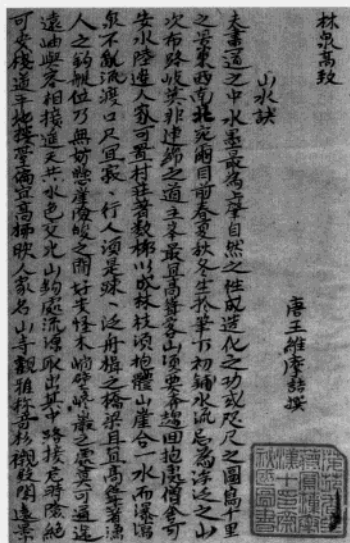 林泉高致
山水訣
唐王維摩詰撰
夫畫道之中水墨最為上肇自然之性成造化之功或咫尺之圖寫千里
之景東西南北宛爾目前春夏秋冬生於筆下初鋪水流忌為浮泛之山
次布路岐莫作連綿之道主峯最宜高聳客山須要奔趨回抱處僧舍可
安水陸邊人家可置村莊著數樹以成林枝須抱體山崖合一水而瀑瀉
泉不亂流渡口只宜寂、行人須是疎、泛舟楫之橋梁且宜高聳著漁
人之釣艇低乃無妨懸崖險峻之間好安怪木峭壁巉巖之處莫可通途
遠岫與容相接遥天共水色交光山鈎處流源取出其中路接危時險絕
可安棧道平地樓臺偏宜高柳映人家名山寺觀雅稱奇杉襯樓閣遠景